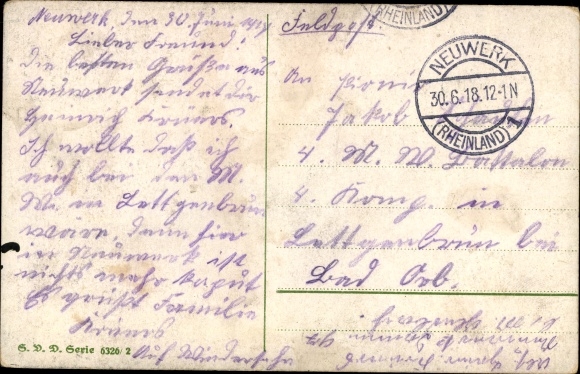 Neuwerk, den 30 Juni 1918
Lieber Freund!
die besten Grüße aus
Neuwerk sendet dir
Heinrich Krüners.
Ich wollte daß ich
auch bei den M.
W. in Lettgenbrun
wäre, denn hier
in Neuwerk ist
nichts mehr kaput
Es grüßt Familie
Krüners
Auf Wiedersehn
S. V. D. Serie 6326/2
Feldpost.
(RHEINLAND)
NEUWERK
30.6.18.12-1N
(RHEINLAND) 1
An Pionier
Jakob
4. M. W. Battalon
4. Komp. in
Lettgenbrun bei
Bad Orb.
Abs.